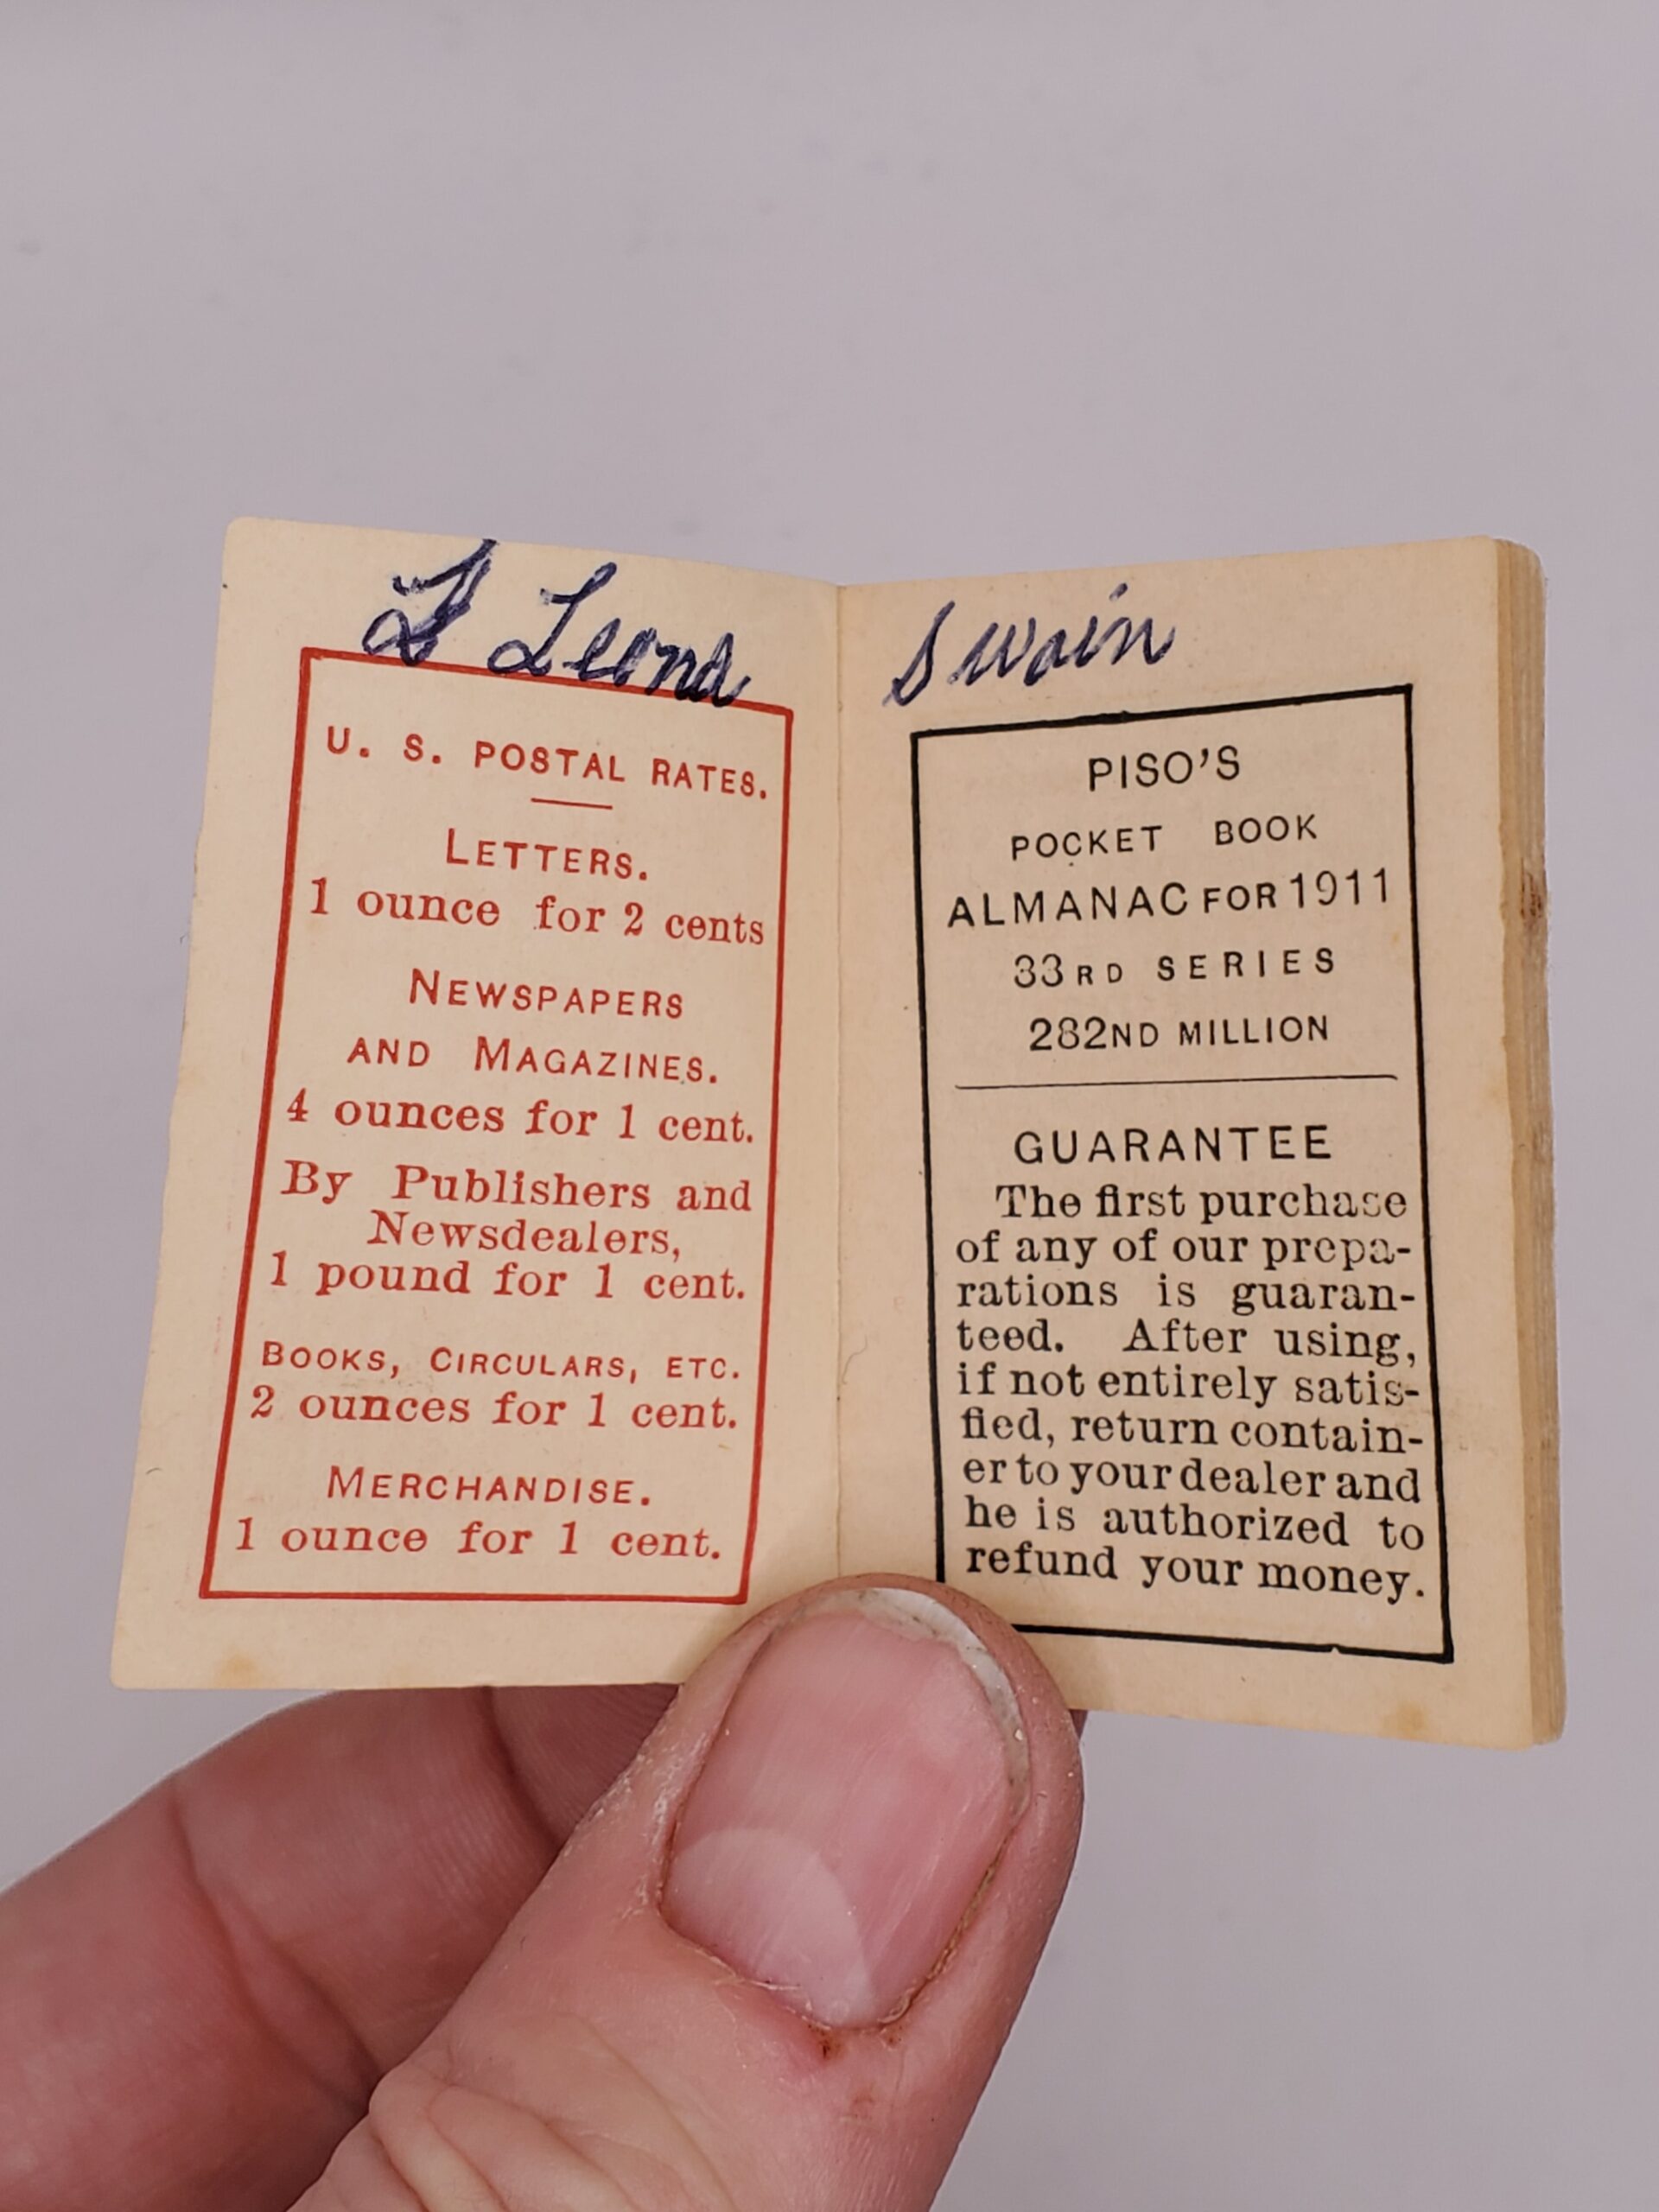 Leona Swain
U. S. POSTAL RATES.
LETTERS.
1 ounce for 2 cents
NEWSPAPERS
AND MAGAZINES.
4 ounces for 1 cent.
By Publishers and
Newsdealers,
1 pound for 1 cent.
BOOKS, CIRCULARS, ETC.
2 ounces for 1 cent.
MERCHANDISE.
1 ounce for 1 cent.
PISO'S
POCKET BOOK
ALMANAC FOR 1911
33RD SERIES
282ND MILLION
GUARANTEE
The first purchase
of any of our prepa-
rations is guaran-
teed. After using,
if not entirely satis-
fied, return contain-
er to your dealer and
he is authorized to
refund your money.